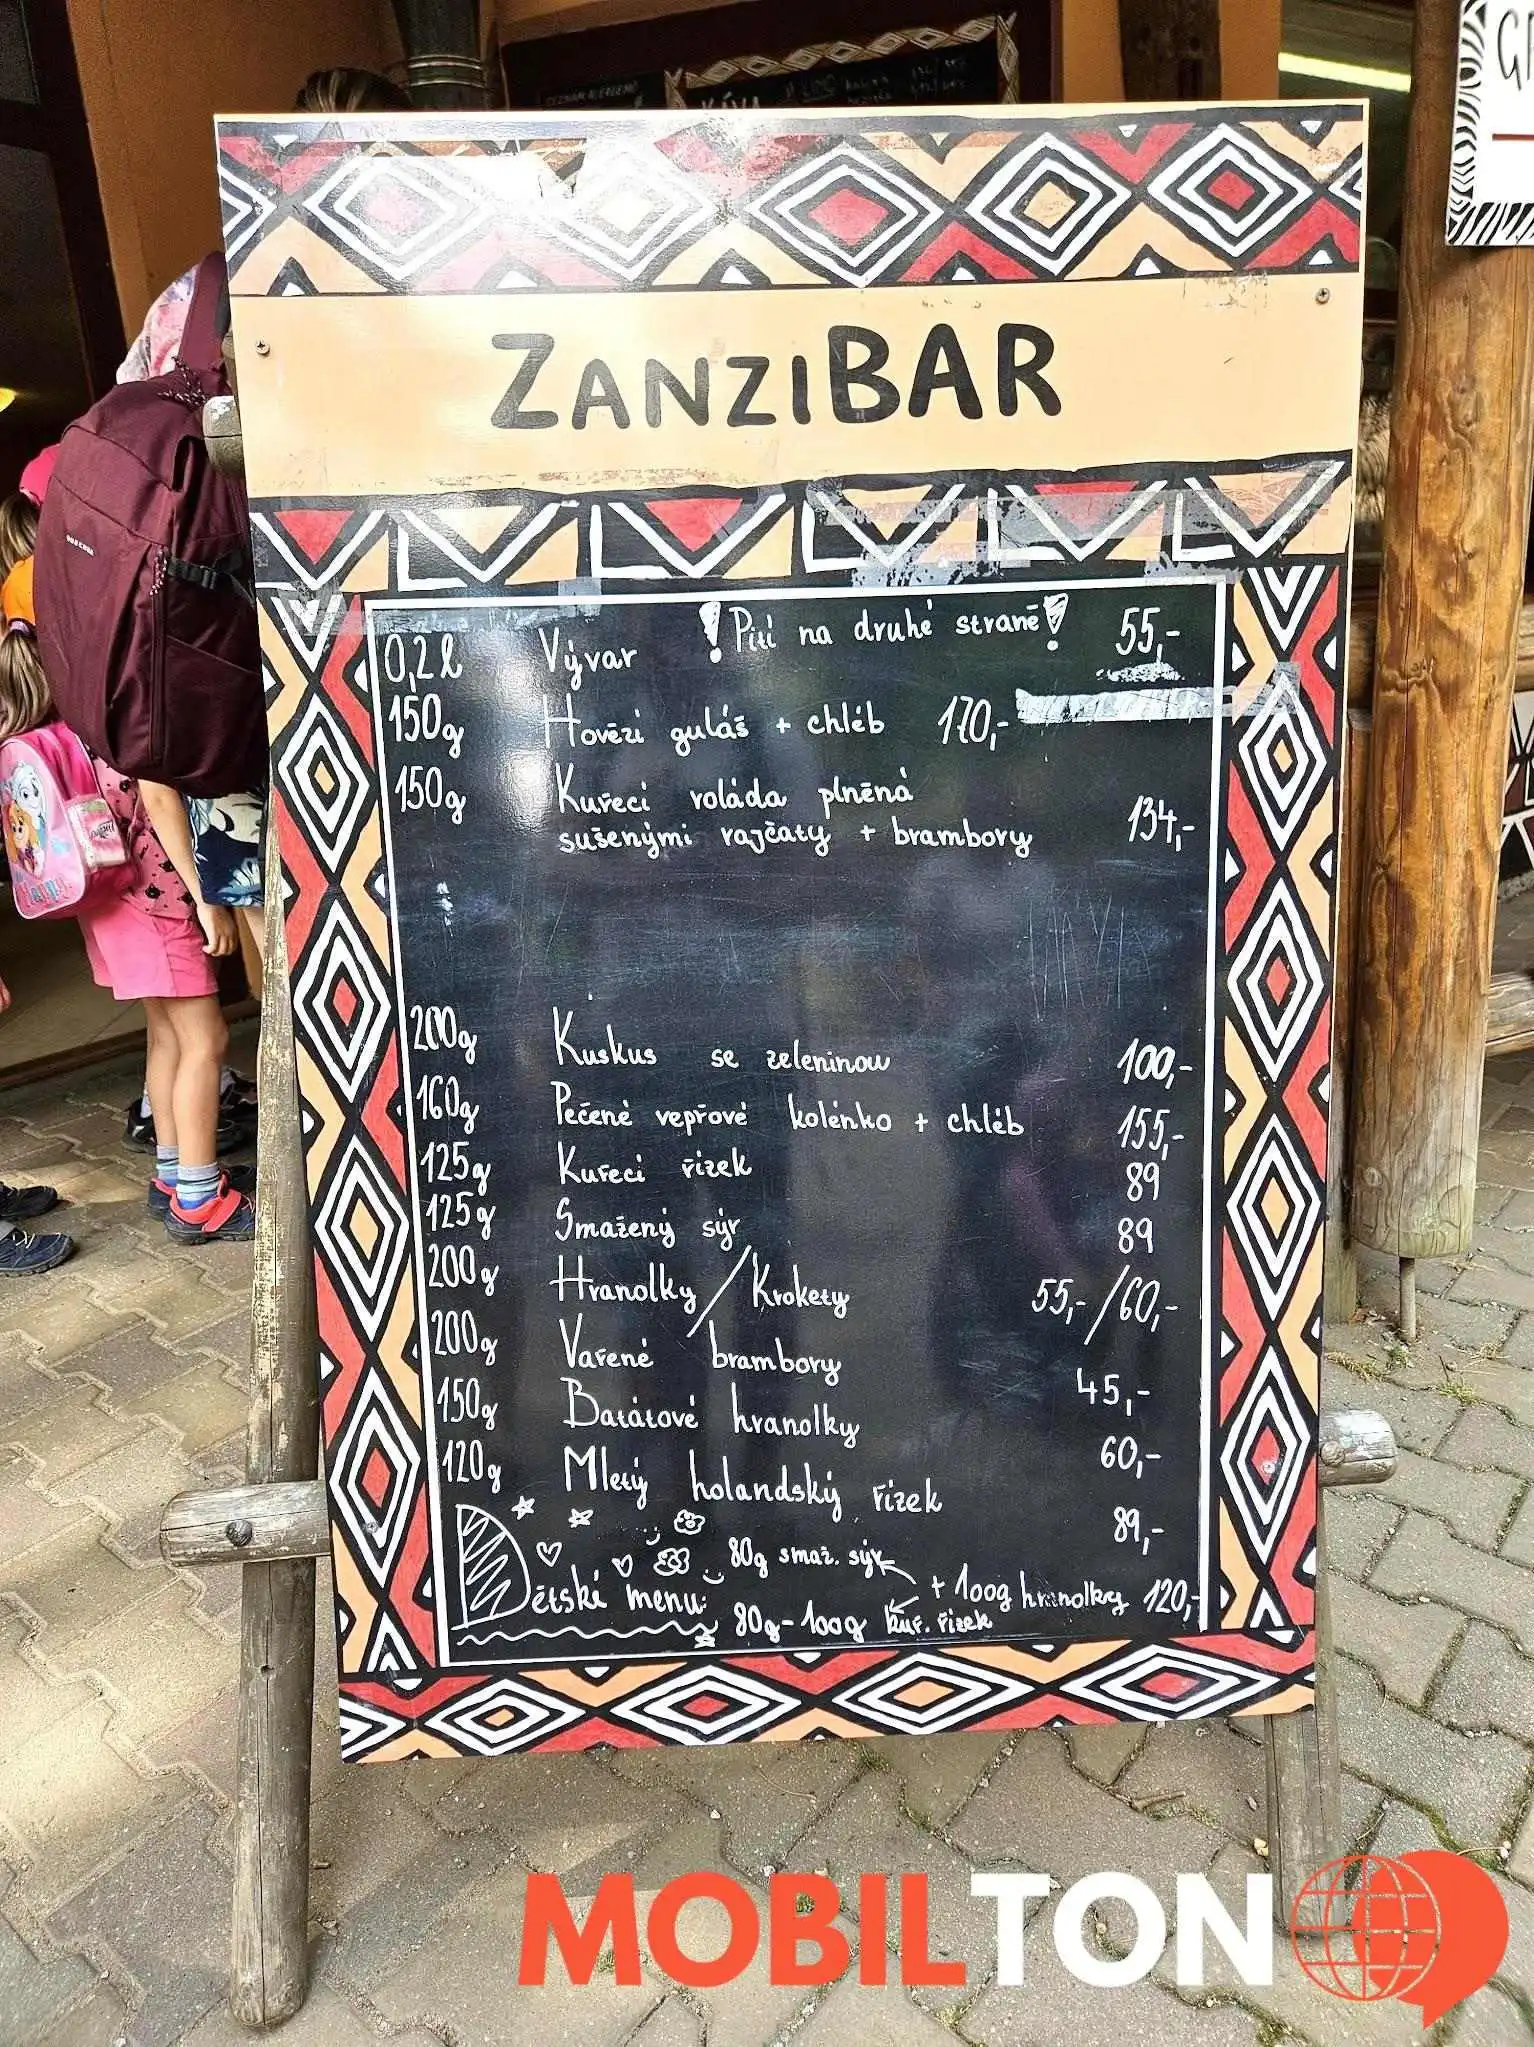 KÁVA
ZANZIBAR
! Pití na druhé straně !
0,2 l Vývar 55,-
150g Hovězí guláš + chléb 170,-
150g Kuřecí roláda plněná
sušenými rajčaty + brambory 134,-
200g Kuskus se zeleninou 100,-
160g Pečené vepřové kolénko + chléb 155,-
125g Kuřecí řízek 89
125g Smažený sýr 89
200g Hranolky / Krokety 55,- / 60,-
200g Vařené brambory 45,-
150g Batátové hranolky 60,-
120g Mletý holandský řízek 89,-
Dětské menu: 80g smaž. sýr
+ 100g hranolky 120,-
80g-100g kuř. řízek
MOBILTON